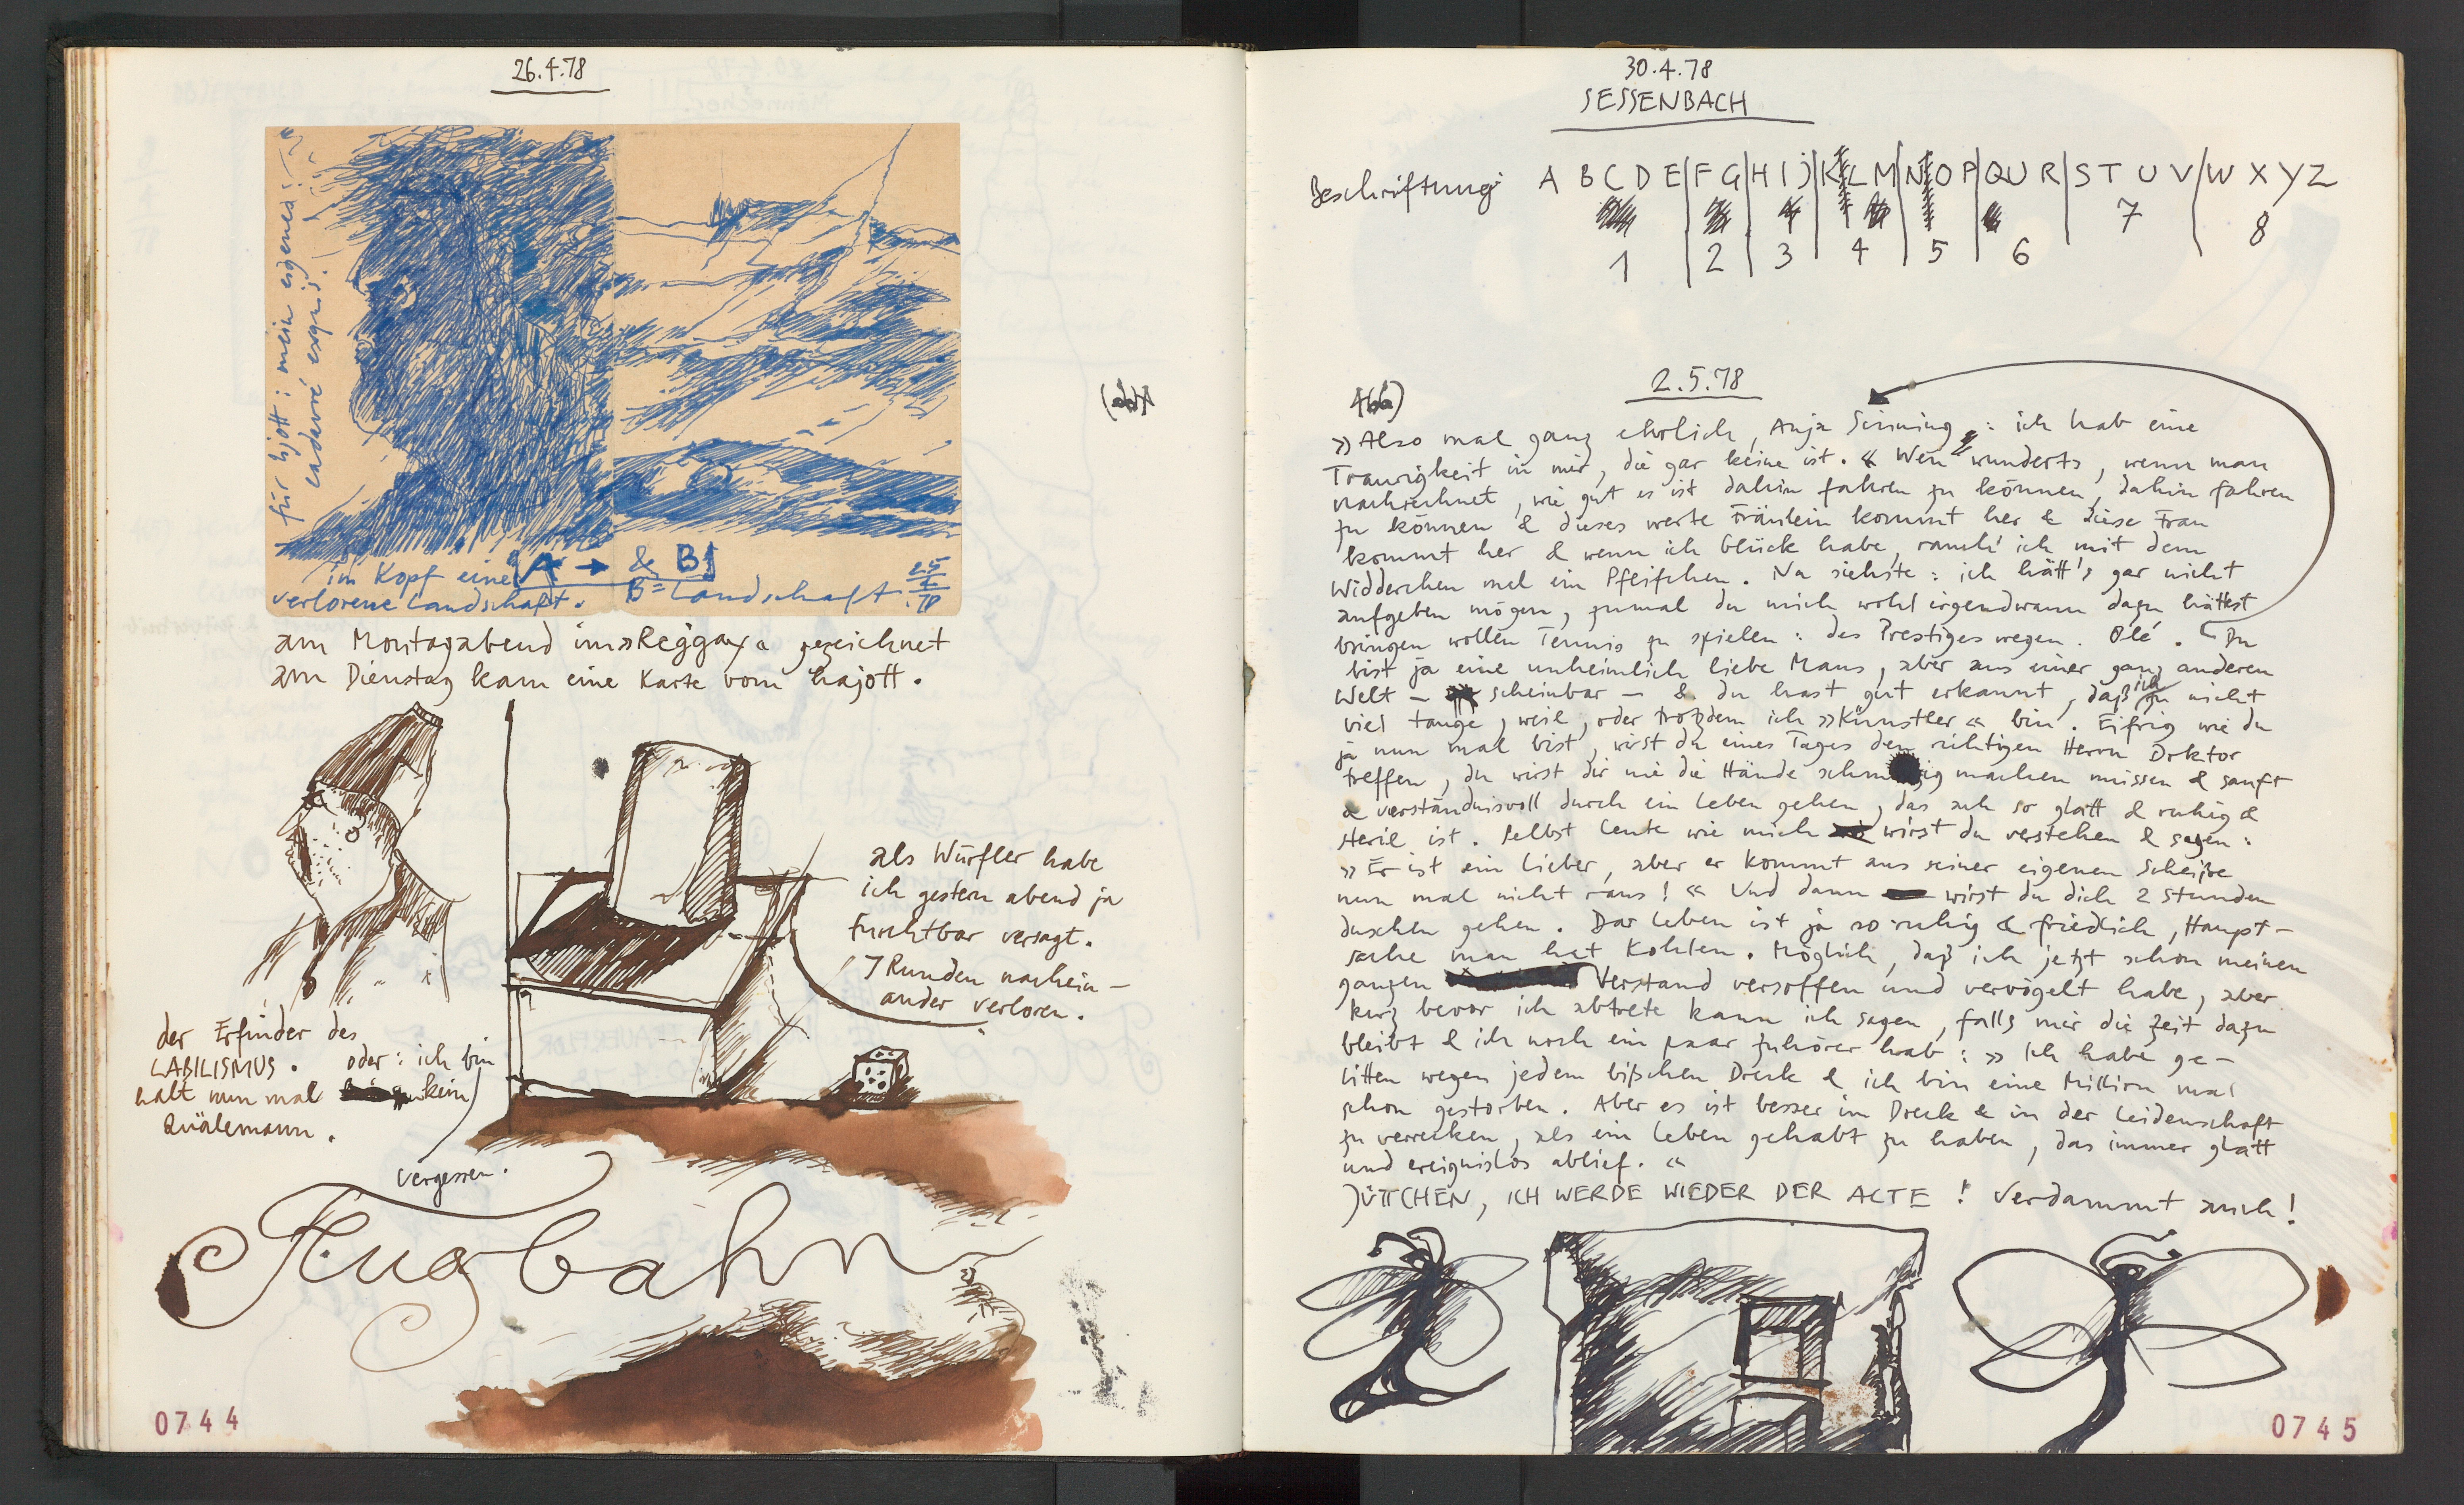 26.4.78
für hjott: mein eigenes
cadavre exquis!
im Kopf eine A → & B
verlorene Landschaft. B = Landschaft. 25/4.78
am Montagabend im »Reggay« gezeichnet
am Dienstag kam eine Karte vom hajott.
als Würfler habe
ich gestern abend ja
furchtbar versagt.
7 Runden nachein-
ander verloren.
der Erfinder des
LABILISMUS. oder: ich bin
halt nun mal kein
Quälemann.
vergessen.
Flugbahn
0744
30.4.78
SESSENBACH
Beschriftung: A B C D E | F G | H I J | K L M | N O P | QU R | S T U V | W X Y Z
7
8
1 2 3 4 5 6
2.5.78
»Also mal ganz ehrlich, Anja Sinning: ich hab eine
Traurigkeit in mir, die gar keine ist.« Wen wunderts, wenn man
nachrechnet, wie gut es ist dahin fahren zu können, dahin fahren
zu können & dieses werte Fräulein kommt her & diese Frau
kommt her & wenn ich Glück habe, rauch' ich mit dem
Widderchen mal ein Pfeifchen. Na siehste: ich hätt's gar nicht
aufgeben mögen, zumal du mich wohl irgendwann dazu hättest
bringen wollen Tennis zu spielen: des Prestiges wegen. Olé. Du
bist ja eine unheimlich liebe Maus, aber aus einer ganz anderen
Welt – scheinbar – & du hast gut erkannt, daß ich nicht
viel tauge, weil, oder trotzdem ich »Künstler« bin. Eifrig wie du
ja nun mal bist, wirst du eines Tages den richtigen Herrn Doktor
treffen, du wirst dir nie die Hände schmutzig machen müssen & sanft
& verständnisvoll durch ein Leben gehen, das auch so glatt & ruhig &
steril ist. Selbst Leute wie mich wirst du verstehen & sagen:
»Er ist ein Lieber, aber er kommt aus seiner eigenen Scheiße
nun mal nicht raus!« Und dann wirst du dich 2 Stunden
duschen gehen. Das Leben ist ja so ruhig & friedlich, Haupt-
sache man hat Kohlen. Möglich, daß ich jetzt schon meinen
ganzen Verstand versoffen und vervögelt habe, aber
kurz bevor ich abtrete kann ich sagen, falls mir die Zeit dazu
bleibt & ich noch ein paar Zuhörer hab: »Ich habe ge-
litten wegen jedem bißchen Dreck & ich bin eine Million mal
schon gestorben. Aber es ist besser im Dreck & in der Leidenschaft
zu verrecken, als ein Leben gehabt zu haben, das immer glatt
und ereignislos ablief.«
JÜTTCHEN, ICH WERDE WIEDER DER ALTE! Verdammt auch!
0745